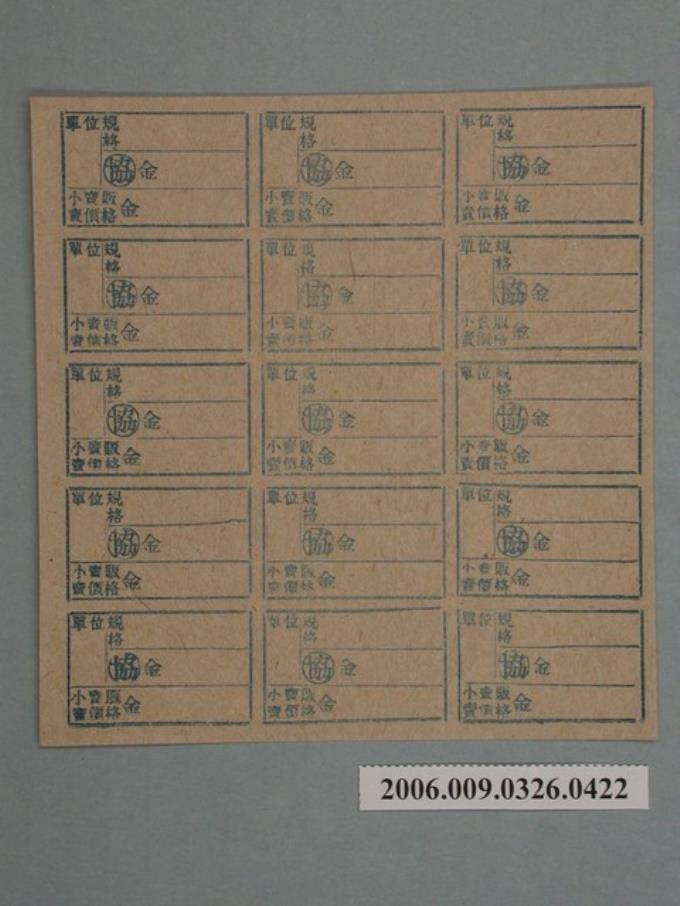 單位 規格
協 金
小賣販
賣價格 金
單位 規格
協 金
小賣販
賣價格 金
單位 規格
協 金
小賣販
賣價格 金
單位 規格
協 金
小賣販
賣價格 金
單位 規格
協 金
小賣販
賣價格 金
單位 規格
協 金
小賣販
賣價格 金
單位 規格
協 金
小賣販
賣價格 金
單位 規格
協 金
小賣販
賣價格 金
單位 規格
協 金
小賣販
賣價格 金
單位 規格
協 金
小賣販
賣價格 金
單位 規格
協 金
小賣販
賣價格 金
單位 規格
協 金
小賣販
賣價格 金
單位 規格
協 金
小賣販
賣價格 金
單位 規格
協 金
小賣販
賣價格 金
單位 規格
協 金
小賣販
賣價格 金
2006.009.0326.0422